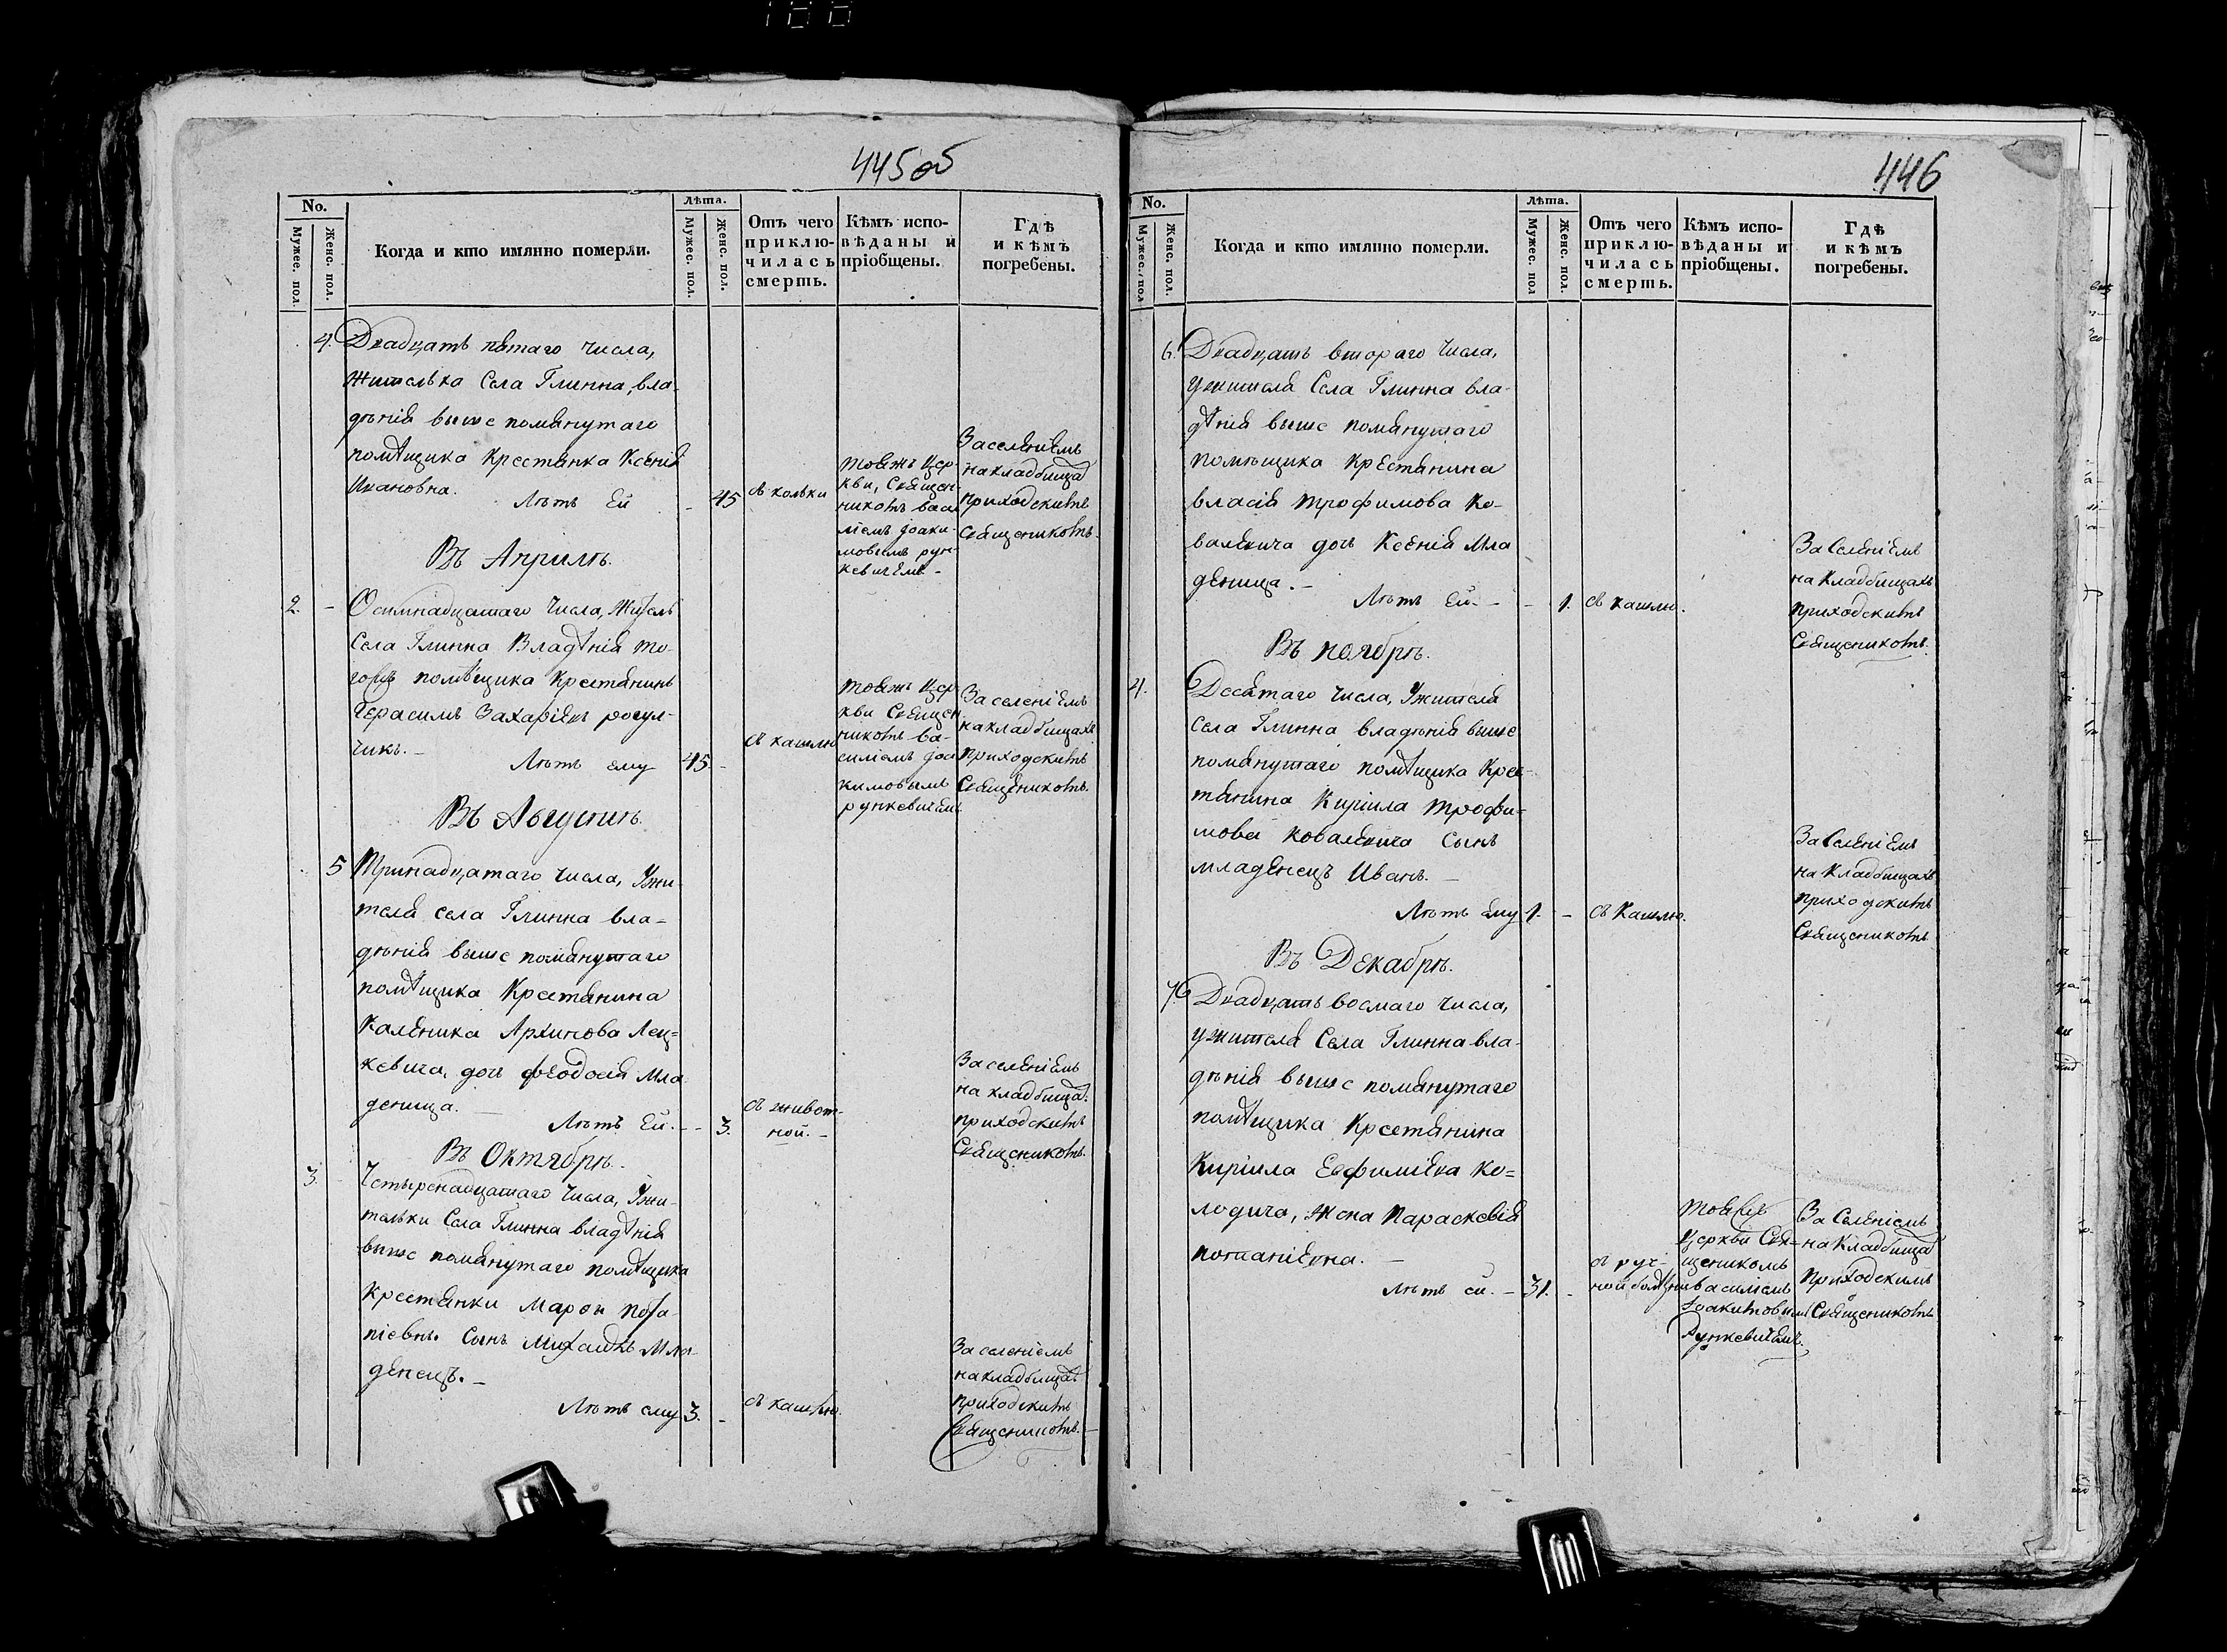 188
445об
No.
Мужес. пол.
Женс. пол.
Когда и кто имянно померли.
Лѣта.
Мужес. пол.
Женс. пол.
Отъ чего
приклю-
чилась
смерть.
Кѣмъ испо-
вѣданы и
пріобщены.
Гдѣ
и кѣмъ
погребены.
4. Двадцать пятаго числа,
жителька Села Глинна, вла-
дѣнія выше помянутаго
помѣщика Крестянка Ксенія
Ивановна.
Лѣтъ Ей - 45
съ кольки
тояжъ Цер-
кви, Священ-
никомъ Васи
ліемъ Іоаки-
мовымъ рун-
кевичемъ. -
За селеніемъ
на кладбища
приходскимъ
Священикомъ.
Въ Априлѣ.
2. - Осимнадцатаго числа, Житель
Села Глинна Владѣнія то-
гожъ помѣщика Крестянинъ
Герасимъ Захаріевъ рогул-
чикъ. -
Лѣтъ ему 45. -
съ кашлю
тояжъ Цер
кви Священ
никомъ Ва-
силіемъ Іоа
кимовымъ
рункевичемъ
За селеніемъ
на кладбищахъ
приходскимъ
Священикомъ.
Въ Августѣ.
5 Тринадцатаго числа, Ужи-
теля села Глинна вла-
дѣнія выше помянутаго
помѣщика Крестянина
Каленика Архипова Лец-
кевича, дочь феодосія Мла
деница. -
Лѣтъ Ей. - - 3.
съ живот-
ной. -
За селеніемъ
на кладбища.
приходскимъ
Священикомъ.
Въ Октябрѣ.
3. Четыренадцатаго числа, Ужи-
тельки Села Глинна владѣнія
выше помянутаго помѣщика
Крестянки Марои Пота-
піевны Сынъ Михаилъ Мла-
денецъ. -
Лѣтъ ему 3. -
съ кашлю.
За селеніемъ
на кладбища.
приходскимъ
Священикомъ. -
446
No.
Мужес. пол
Женс. пол.
Когда и кто имянно померли.
Лѣта.
Мужес. пол
Женс. пол.
Отъ чего
приклю-
чилась
смерть.
Кѣмъ испо-
вѣданы и
пріобщены.
Гдѣ
и кѣмъ
погребены.
6. Двадцать втораго числа,
ужителя Села Глинна вла-
дѣнія выше помянутаго
помѣщика Крестянина
власія трофимова Ко-
валевича дочь Ксенія Мла
деница. -
Лѣтъ Ей. - - 1.
съ кашлю.
За Селеніемъ
на Кладбищахъ
приходскимъ
Священикомъ.
Въ ноябрѣ.
4. Десятаго числа, Ужителя
села Глинна владѣнія выше
помянутаго помѣщика Крес-
тянина Киріила трофи-
мова ковалевича Сынъ
младенецъ Иванъ. -
Лѣтъ Ему 1. -
съ Кашлю.
За Селеніемъ
на Кладбищахъ
приходскимъ
Священикомъ
Въ Декабрѣ.
7. Двадцать восмаго числа,
ужителя Села Глинна вла-
дѣнія выше помянутаго
помѣщика Крестянина
Киріила Евфиміева Ко-
лодича, Жена Параскевія
потапіевна. -
Лѣтъ ей. - 31. -
съ руч-
ной болѣзни
тояжъ
Церкви Свя-
щеникомъ
василіемъ
Іоакимовымъ
Рункевичемъ.
За Селеніемъ
на Кладбища
приходскимъ
Священикомъ